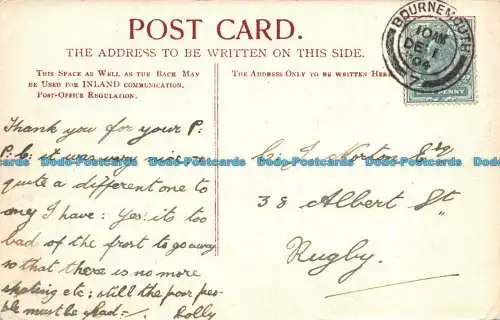 POST CARD.
THE ADDRESS TO BE WRITTEN ON THIS SIDE.
THIS SPACE AS WELL AS THE BACK MAY
BE USED FOR INLAND COMMUNICATION.
POST-OFFICE REGULATION.
THE ADDRESS ONLY TO BE WRITTEN HERE
BOURNEMOUTH
10 AM
DE 1
04
7
PENNY
Thank you for your P:
P.C: it was very nice
quite a different one to
any I have: Yes: it's too
bad of the frost to go away
so that there is no more
skating etc; still the poor peo-
ple must be glad -
Dolly
Norton Esq
38 Albert St
Rugby.
Dodo-Postcards Dodo-Postcards Dodo-Postcards Dodo-Postcards Dodo-Postcards